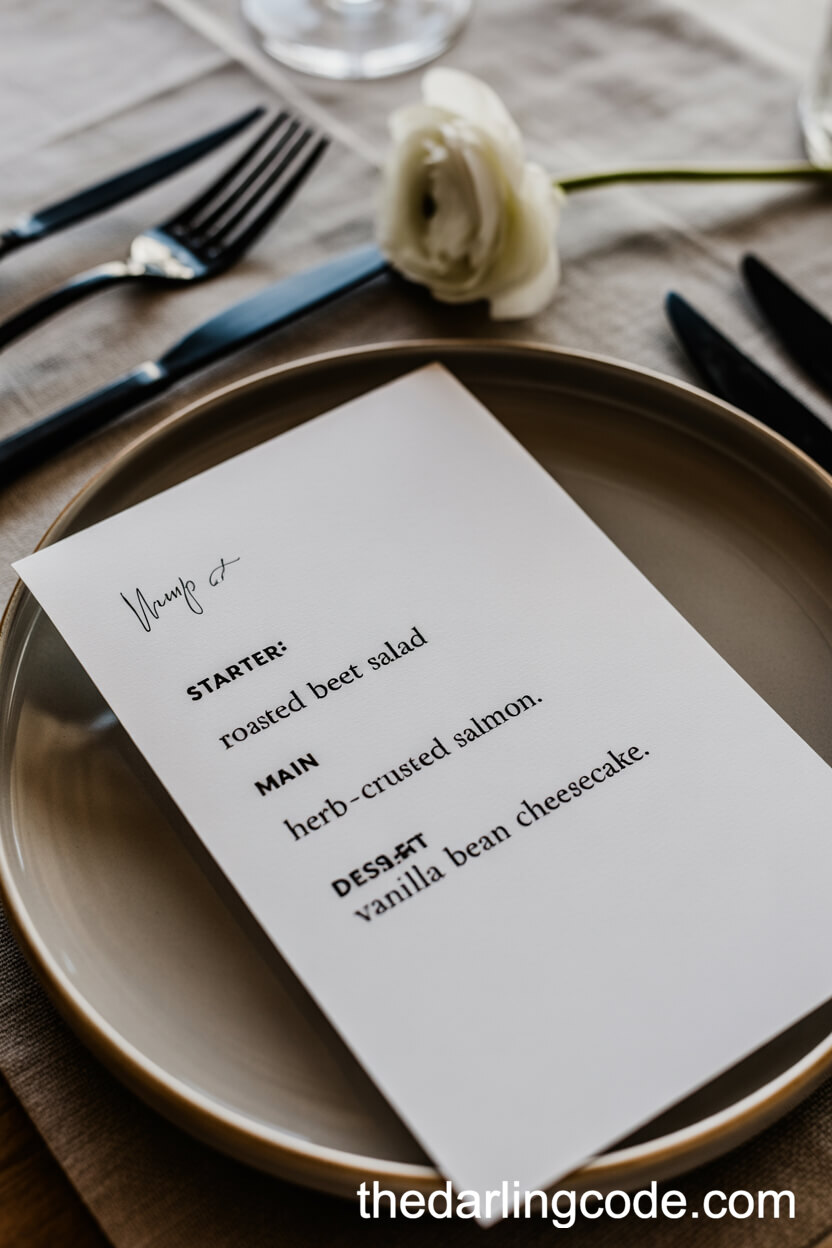 STARTER:
roasted beet salad
MAIN
herb-crusted salmon.
vanilla bean cheesecake.
thedarlingcode.com